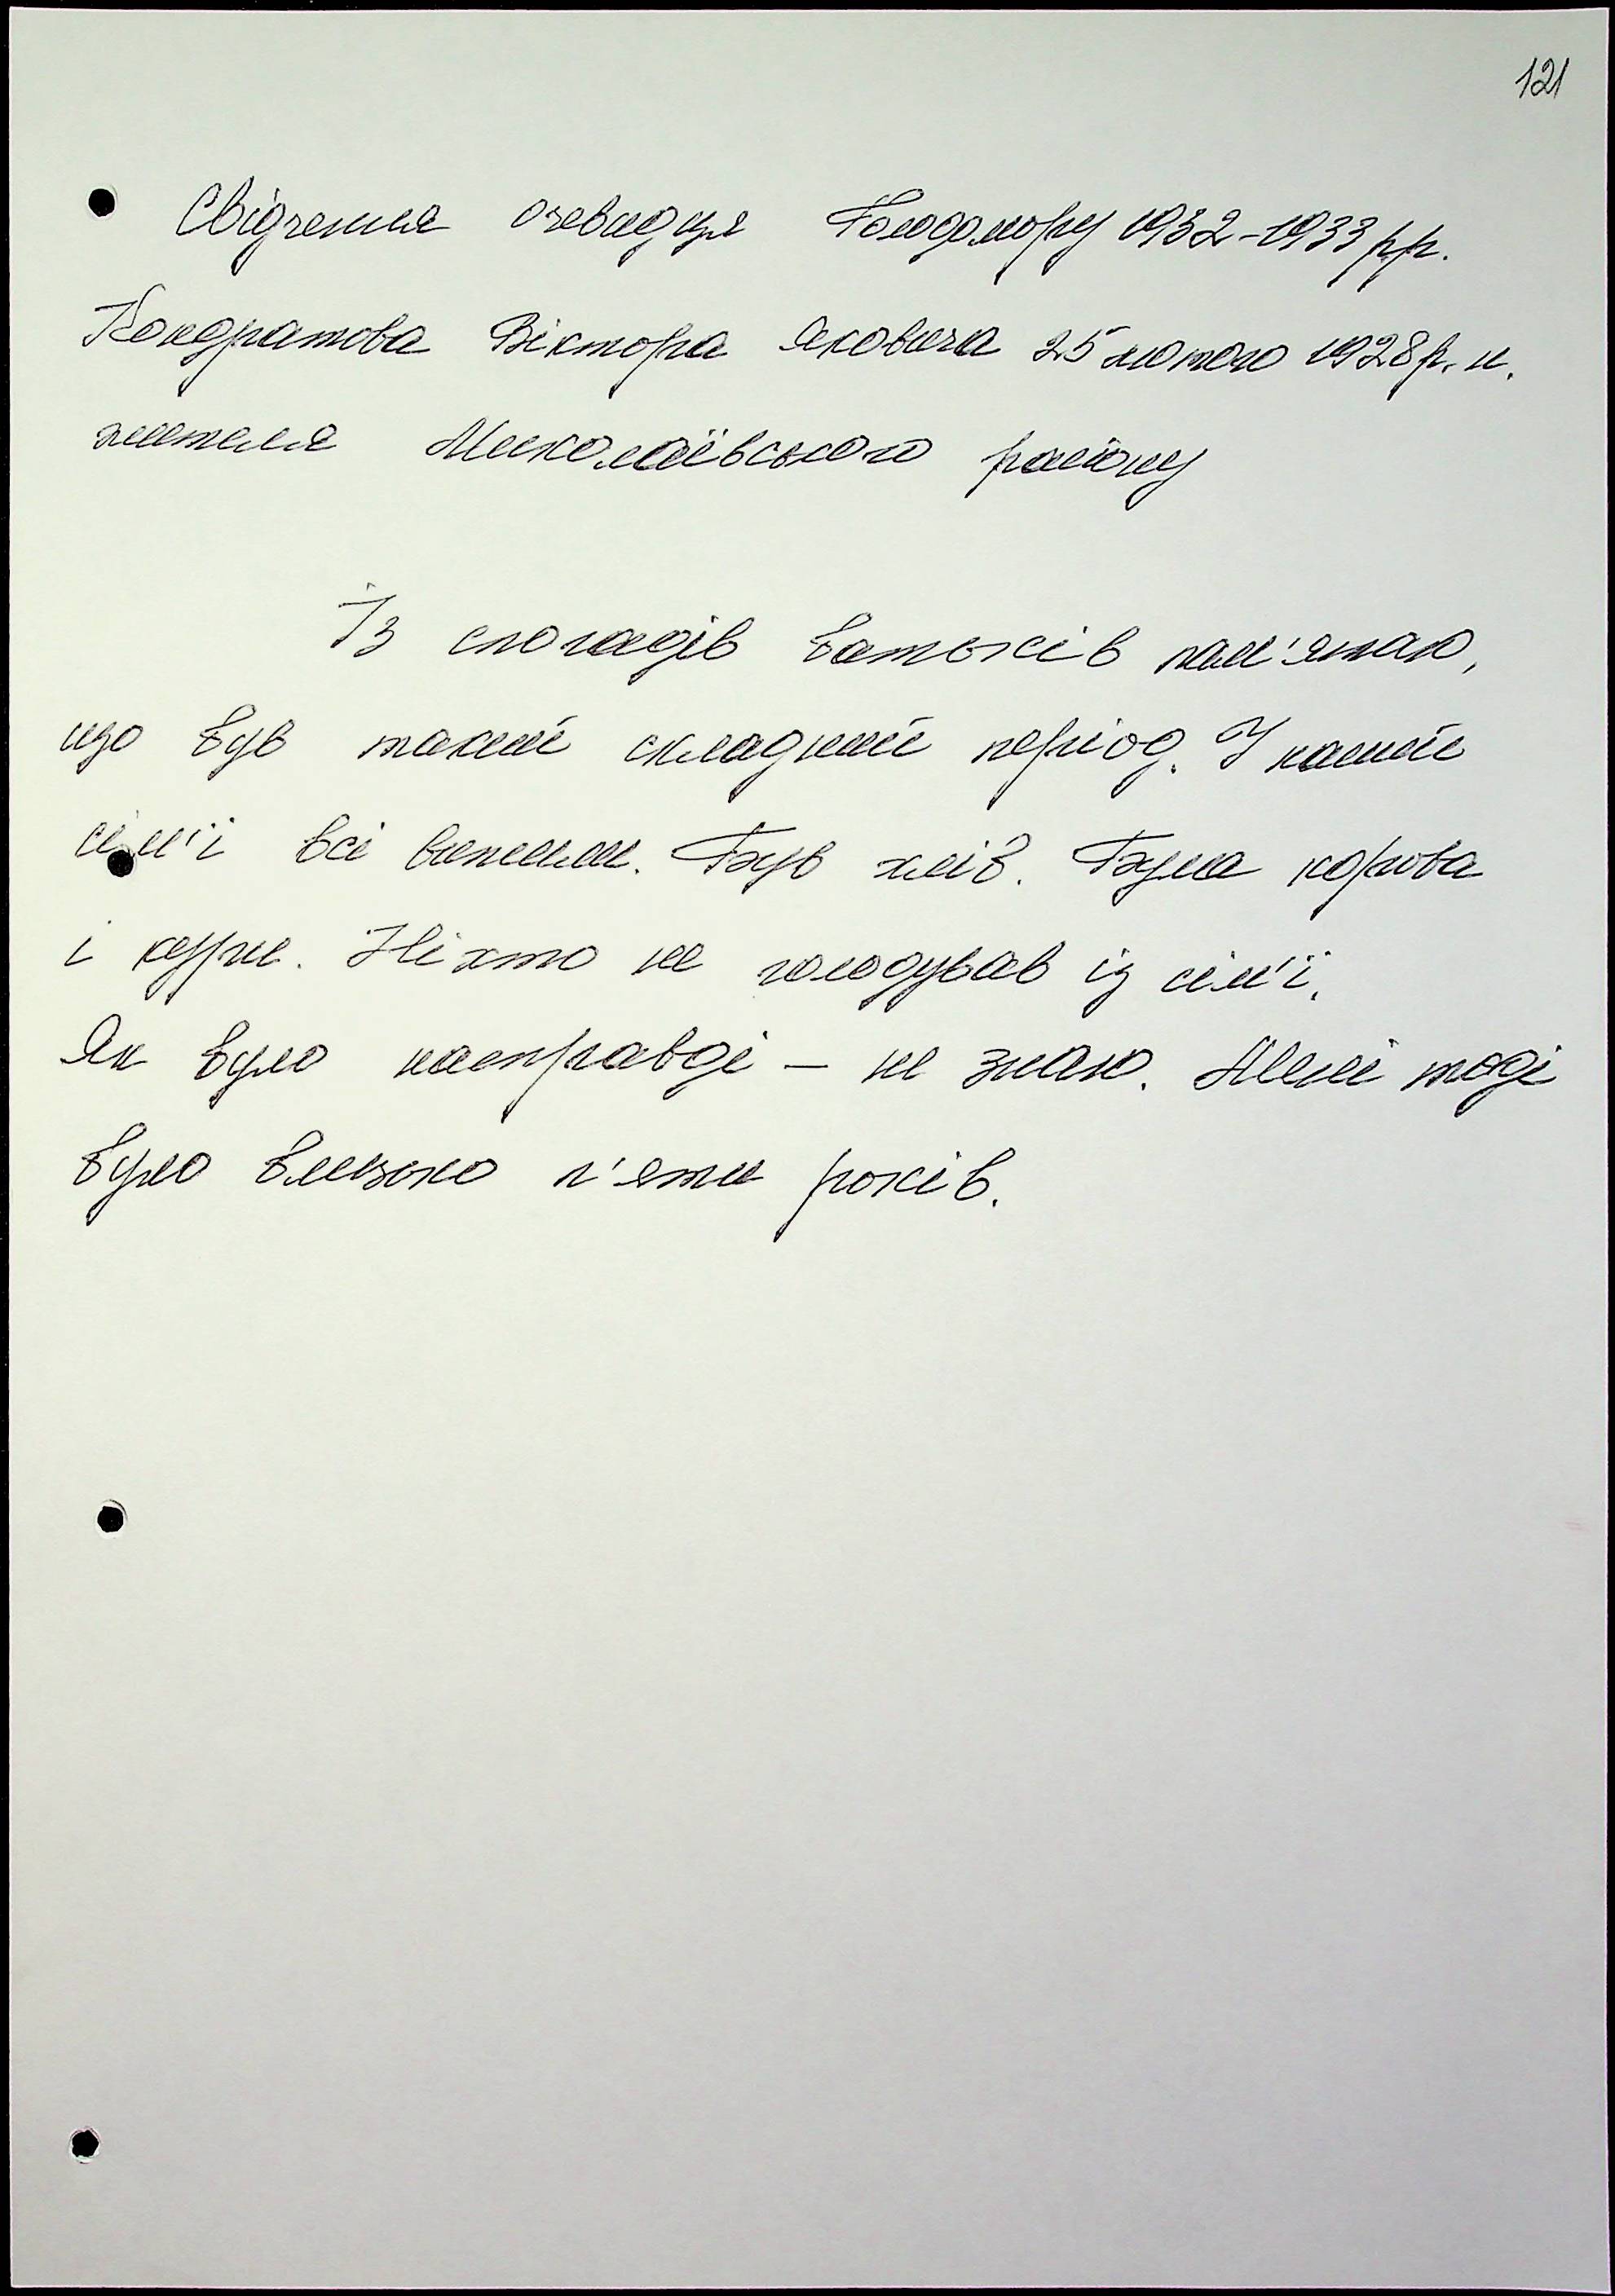 121
Свідчення очевидця Голодомору 1932-1933 рр.
Кондратова Віктора Яковича 25 лютого 1928 р. н.
жителя Миколаївського району
Із спогадів батьків пам'ятаю,
що був такий складний період. У нашій
сім'ї всі вижили. Був хліб. Була корова
і кури. Ніхто не голодував із сім'ї.
Як було насправді – не знаю. Мені тоді
було близько п'яти років.